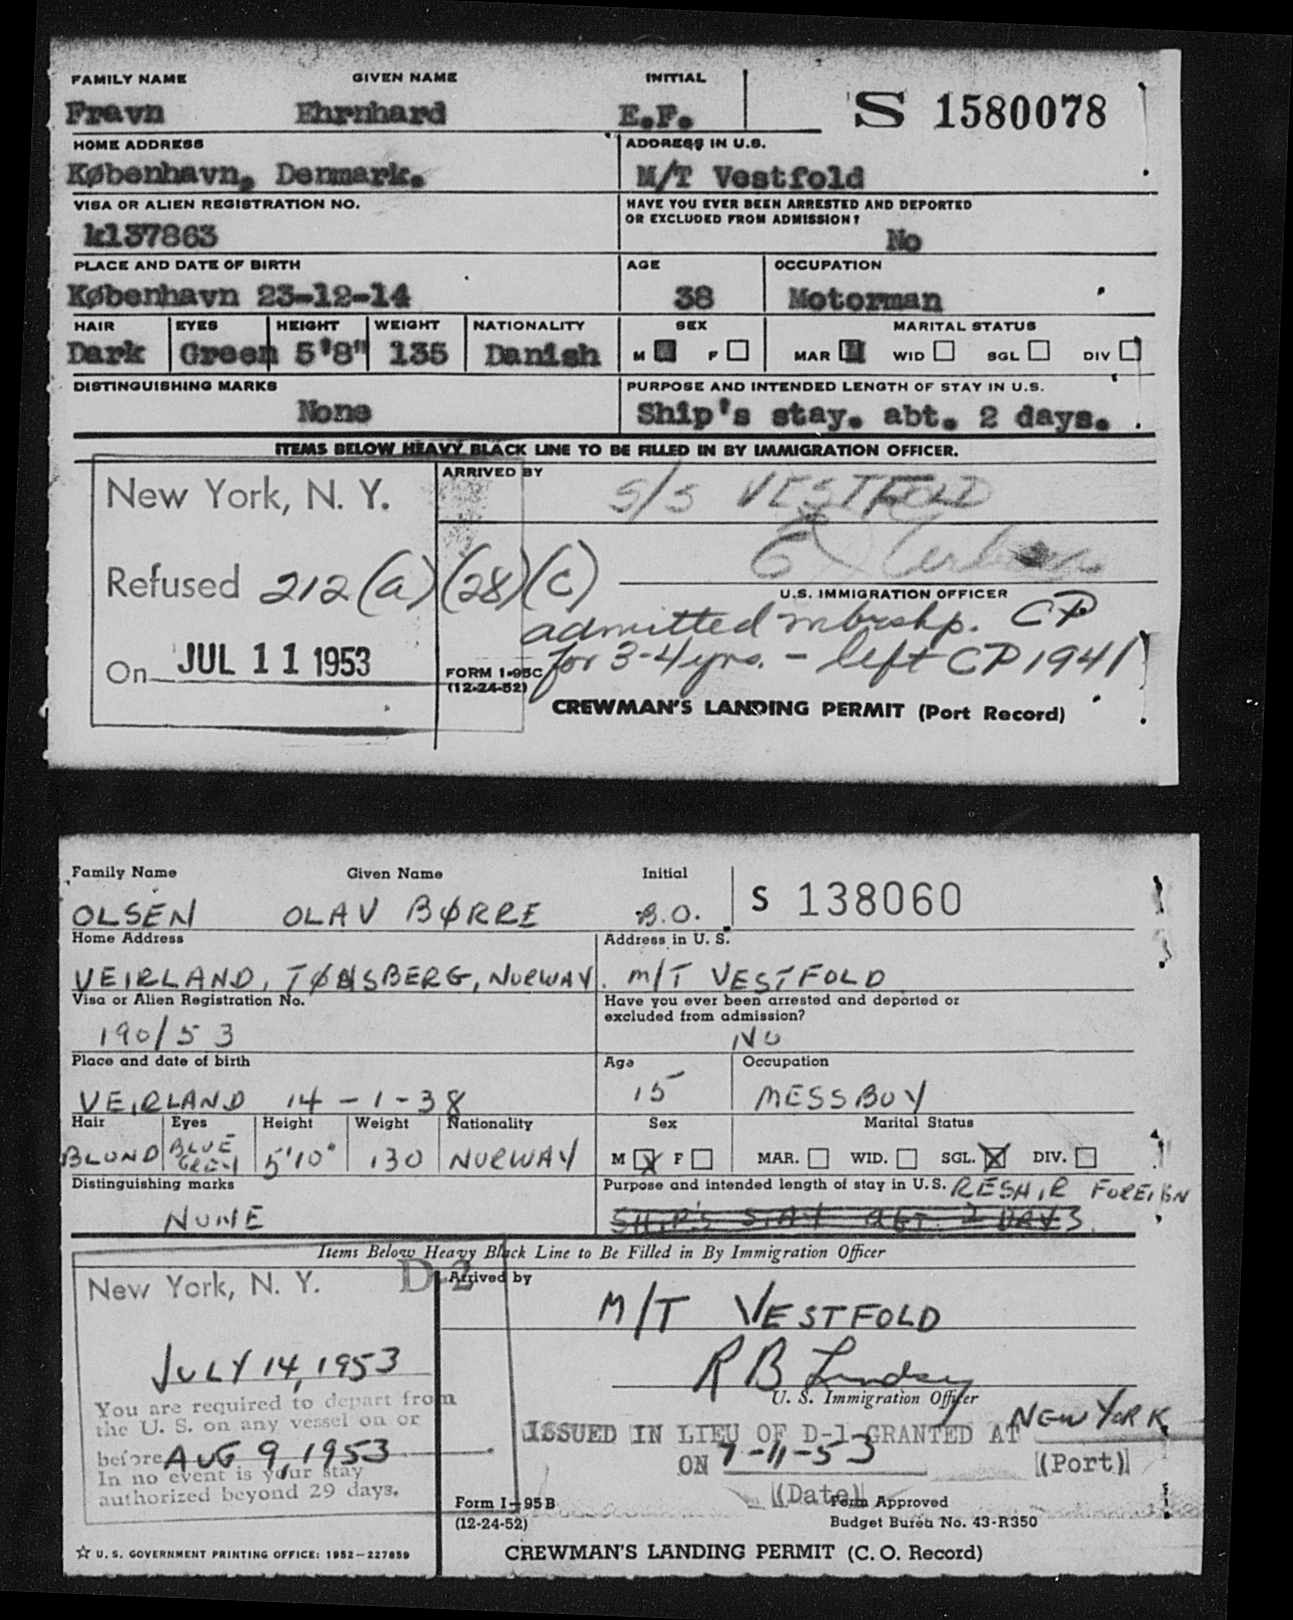 FAMILY NAME GIVEN NAME INITIAL
Fravn Ehrnhard E.F. S 1580078
HOME ADDRESS ADDRESS IN U.S.
København, Denmark. M/T Vestfold
VISA OR ALIEN REGISTRATION NO. HAVE YOU EVER BEEN ARRESTED AND DEPORTED
OR EXCLUDED FROM ADMISSION?
k137863 No
PLACE AND DATE OF BIRTH AGE OCCUPATION
København 23-12-14 38 Motorman
HAIR EYES HEIGHT WEIGHT NATIONALITY SEX MARITAL STATUS
Dark Green 5'8" 135 Danish M F MAR WID SGL DIV
DISTINGUISHING MARKS PURPOSE AND INTENDED LENGTH OF STAY IN U.S.
None Ship's stay. abt. 2 days.
ITEMS BELOW HEAVY BLACK LINE TO BE FILLED IN BY IMMIGRATION OFFICER.
ARRIVED BY
New York, N. Y. S/S VESTFOLD
Refused 212(a)(28)(C)
U.S. IMMIGRATION OFFICER
admitted mbrshp. CP
On JUL 11 1953 for 3-4 yrs. - left CP 1941
FORM I-95C
(12-24-52)
CREWMAN'S LANDING PERMIT (Port Record)
Family Name Given Name Initial
OLSEN OLAV BØRRE B.O. S 138060
Home Address Address in U. S.
VEIRLAND, TØNSBERG, NORWAY. M/T VESTFOLD
Visa or Alien Registration No. Have you ever been arrested and deported or
excluded from admission?
190/53 NO
Place and date of birth Age Occupation
VEIRLAND 14-1-38 15 MESSBOY
Hair Eyes Height Weight Nationality Sex Marital Status
BLOND BLUE GREY 5'10" 130 NORWAY M F MAR. WID. SGL. DIV.
Distinguishing marks Purpose and intended length of stay in U.S. RESHIP FOREIGN
NONE SHIP'S STAY ABT. 2 DAYS.
Items Below Heavy Black Line to Be Filled in By Immigration Officer
D-2 Arrived by
New York, N. Y.
M/T VESTFOLD
JULY 14, 1953 R B Lindsey
You are required to depart from U. S. Immigration Officer
the U. S. on any vessel on or
ISSUED IN LIEU OF D-1 GRANTED AT NEW YORK
before AUG 9, 1953 ON 7-11-53 (Port)
In no event is your stay
authorized beyond 29 days. (Date)
Form I-95B Form Approved
(12-24-52) Budget Bureau No. 43-R350
☆ U. S. GOVERNMENT PRINTING OFFICE: 1952—227859 CREWMAN'S LANDING PERMIT (C. O. Record)